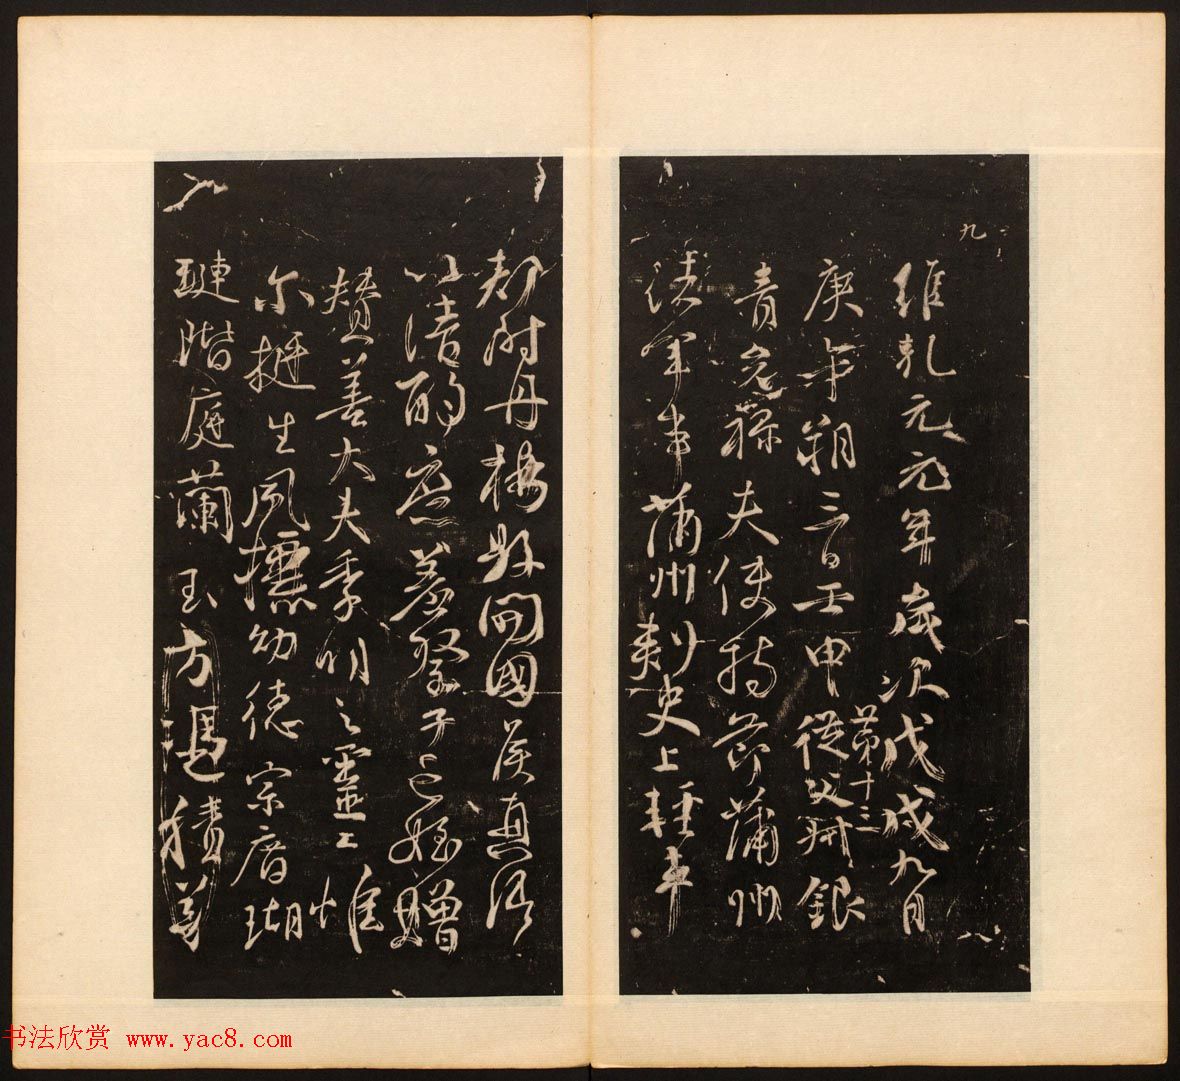 九
維乾元元年歲次戊戌九月
庚午朔三日壬申從父叔銀
第十三
青光祿夫使持節蒲州
諸軍事蒲州刺史上輕車
都尉丹楊縣開國侯真卿
以清酌庶羞祭于亡姪贈
贊善大夫季明之靈曰惟
爾挺生夙標幼德宗廟瑚
璉階庭蘭玉方憑積善
书法欣赏 www.yac8.com